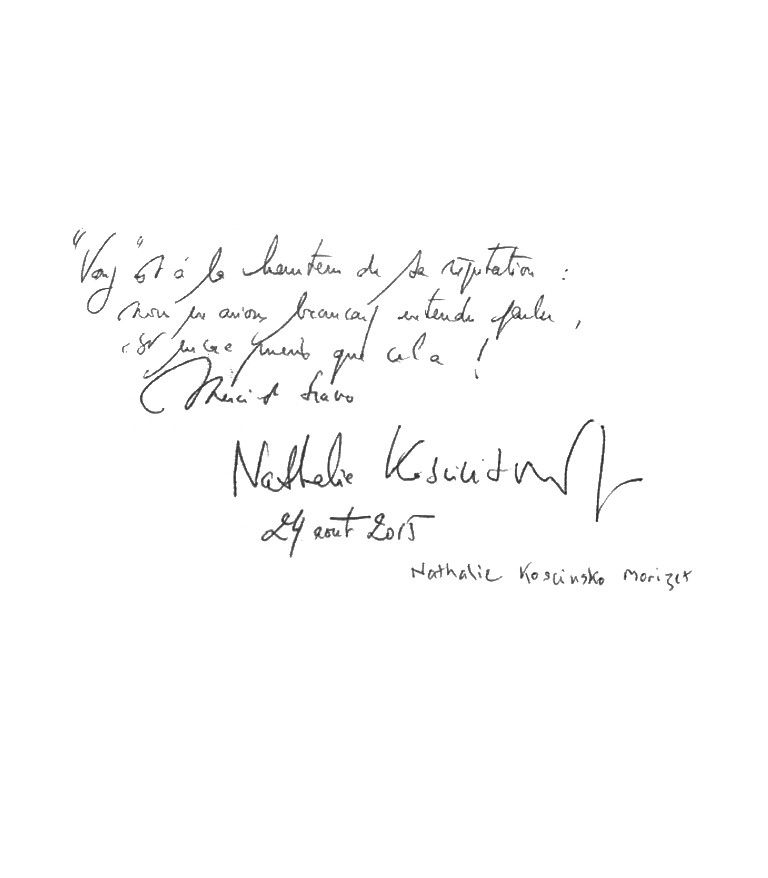 "Vony" est à la hauteur de sa réputation :
nous en avions beaucoup entendu parler,
est encore mieux que cela !
Merci et bravo
Nathalie Kosciusko
24 août 2015
Nathalie Koscinsko Morizet